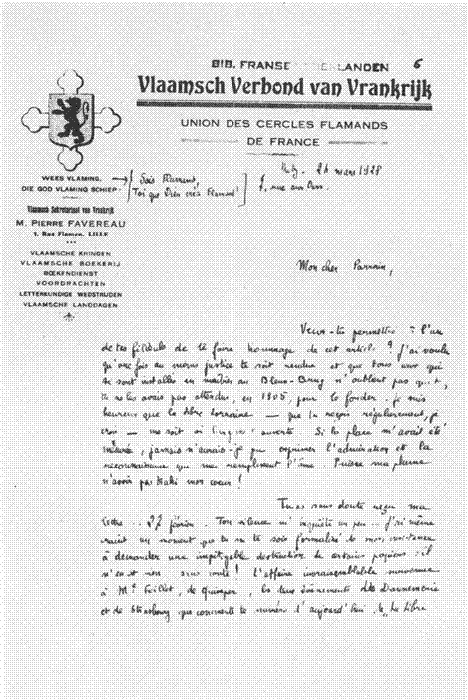 BIB. FRANSE LANDEN 6
Vlaamsch Verbond van Vrankrijk
UNION DES CERCLES FLAMANDS
DE FRANCE
24 mars 1928
WEES VLAMING,
DIE GOD VLAMING SCHIEP
Sois Flamand,
Toi que Dieu créa Flamand!
Vlaamsch Secretariaat van Vrankrijk
M. PIERRE FAVEREAU
1. Rue Flamen. LILLE
VLAAMSCHE KRINGEN
VLAAMSCHE BOEKERIJ
BOEKENDIENST
VOORDRACHTEN
LETTERKUNDIGE WEDSTRIJDEN
VLAAMSCHE LANDDAGEN
Mon cher Parrain,
Veux-tu permettre à l'un
de tes filleuls de te faire hommage de cet article? J'ai voulu
qu'une fois au moins justice te soit rendue et que tous ceux qui
se sont installés en maîtres au Bleun-Brug n'oublient pas que
tu ne les avais pas attendus, en 1905, pour le fonder. Je suis
heureux que la libre lorraine — que tu reçois régulièrement, je
crois — me soit si ouverte. Si la place m'avait été
mesurée, jamais n'aurais-je pu exprimer l'admiration et la
reconnaissance qui me remplissent l'âme. Puisse ma plume
n'avoir pas trahi mon coeur!
Tu as sans doute reçu ma
lettre 27 février. Ton silence m'inquiète un peu. J'ai même
craint un moment que tu ne te sois formalisé de mon insistance
à demander une impitoyable destruction de certains papiers: il
n'en est rien, sans doute! L'affaire invraisemblable survenue
à Mr Feillet, de Quimper, les tristes évènements d'Annemerie
et de Strasbourg que commente le numéro d'aujourd'hui de la libre